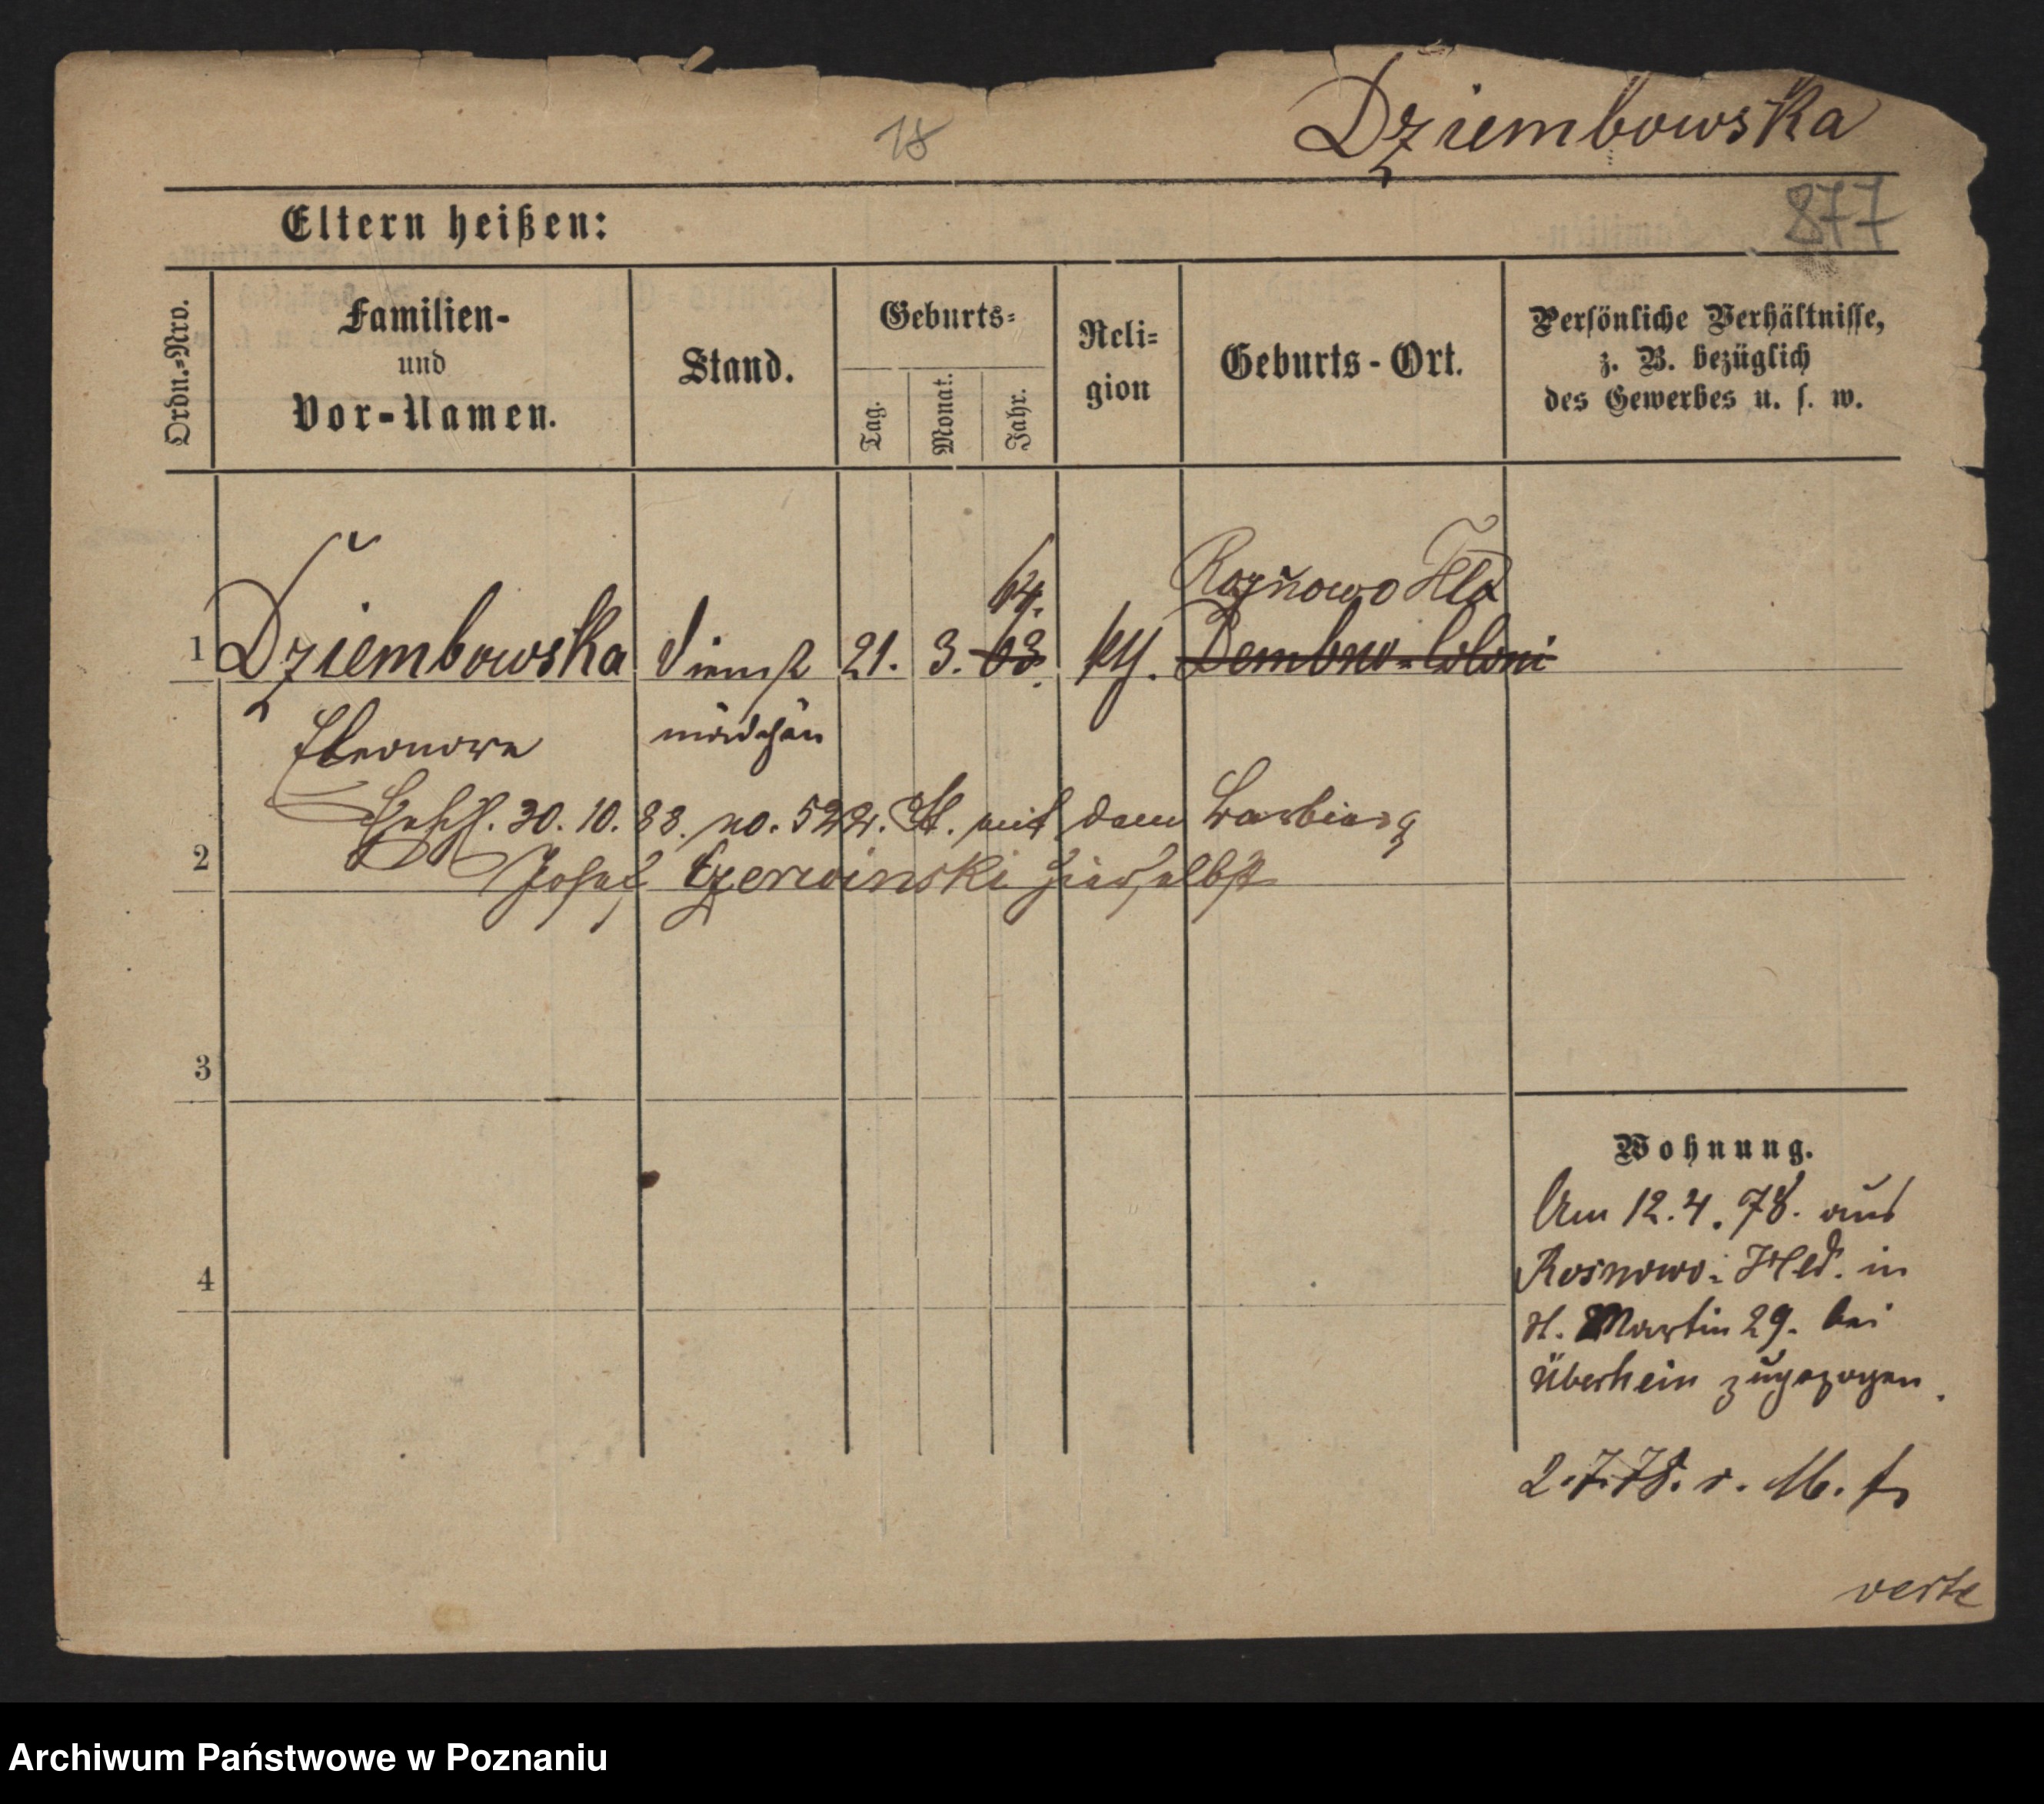 Dziembowska
18
877
Eltern heißen:
Ordn.-Nro.
Familien-
und
Vor-Namen.
Stand.
Geburts-
Tag.
Monat.
Jahr.
Reli-
gion
Geburts-Ort.
Persönliche Verhältnisse,
z. B. bezüglich
des Gewerbes u. s. w.
64.
Rosnowo Hld
1 Dziembowska Dienst 21. 3. 63. kth. Dembno-Coloni
Eleonore mädchen
30. 10. 88. no. 522. St. mit dem Barbier
2
Josef Czerwinski hierselbst
3
4
Wohnung.
Am 12. 4. 78. aus
Rosnowo-Hld. in
St. Martin 29. bei
Überhein zugezogen.
2.7.78. v. M. f.
verte
Archiwum Państwowe w Poznaniu